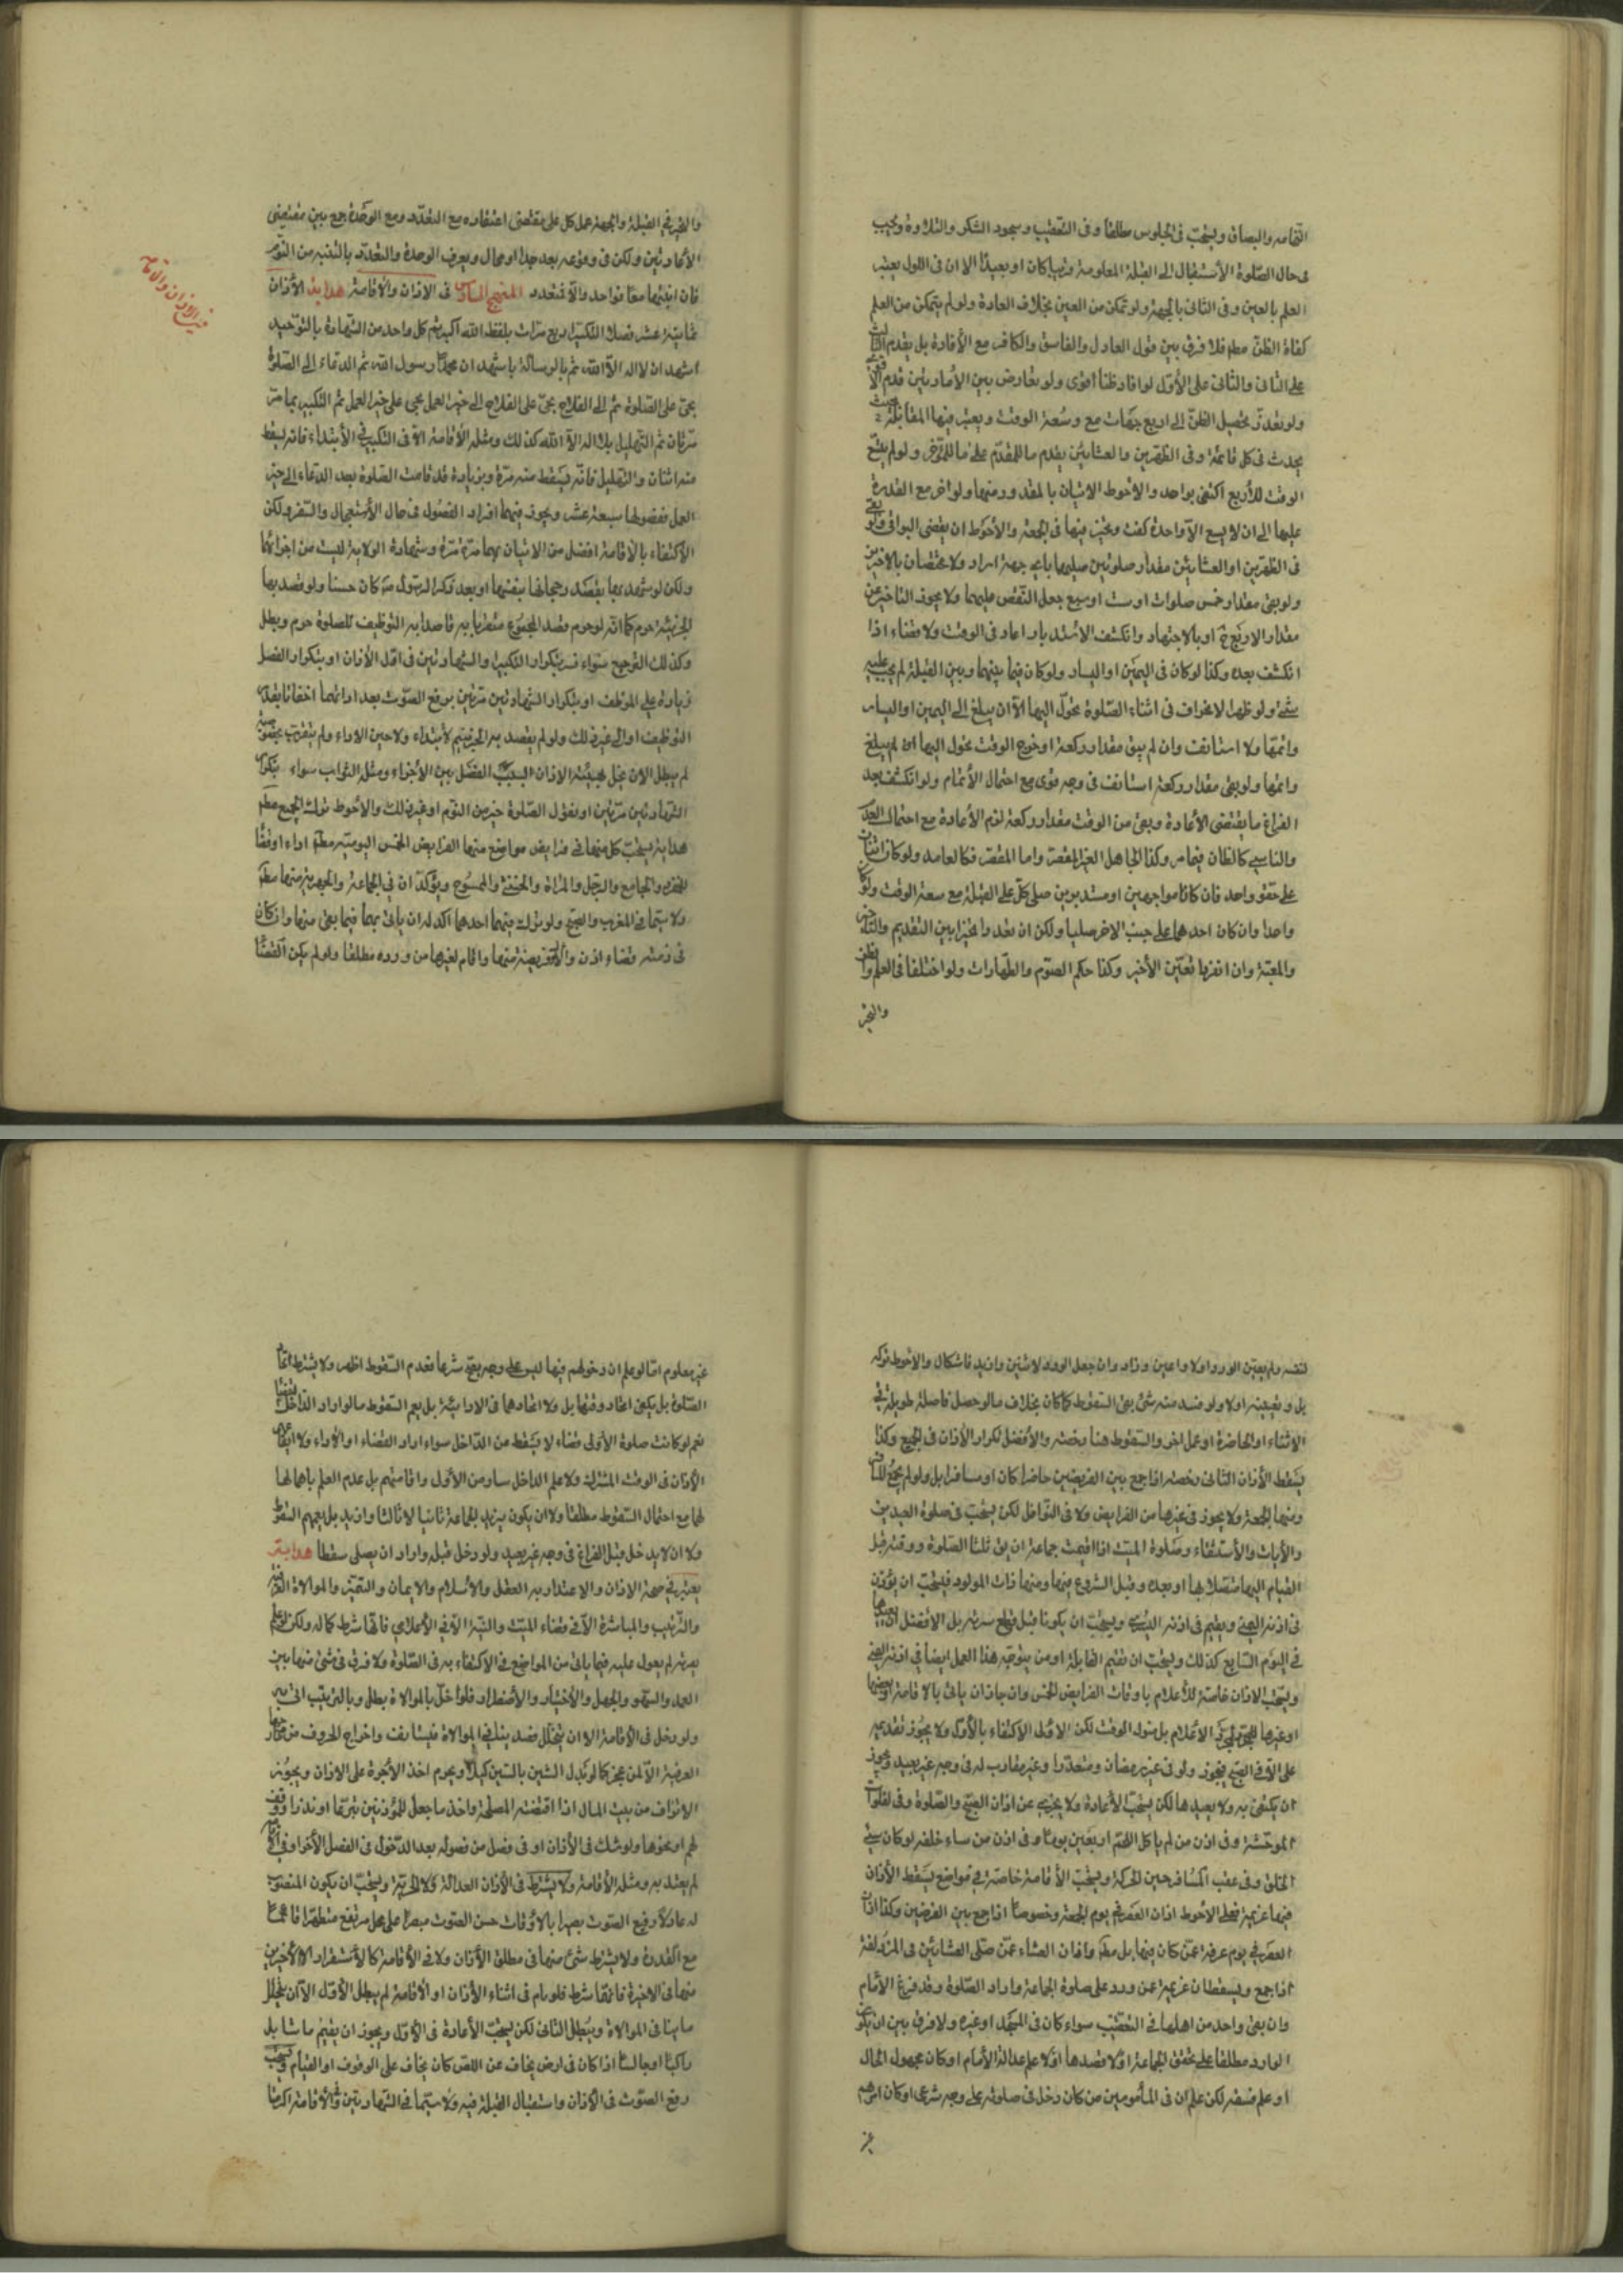 النخامه والبصاق ويستحب في الجلوس مطلقا وفي التعقيب وسجود الشكر والتلاوة ويجب
في حال الصلوة الأستقبال الى القبلة المعلومة قريبا كان او بعيدا الا ان في الاول يعتبر
العلم بالعين وفي الثاني بالجهة ولو تمكن من العين بخلاف العادة ولو لم يتمكن من العلم
كفاه الظن مطم فلا فرق بين قول العادل والفاسق والكافر مع الأفادة بل يقدم الثالث
على الثاني والثاني على الأول لو افاد ظنا اقوى ولو تعارض بين الأمارتين قدم
ولو تعذر تحصيل الظن الى اربع جهات مع وسعة الوقت ويعتبر فيها المقابلة
يحدث في كل فائتة وفي الظهرين والعشائين يقدم ما للمقدم على ما للمؤخر ولو لم يتسع
الوقت للأربع اكتفى بواحد والاحوط الاتيان بالمقدور منها ولو اخر مع القدرة
عليها الى ان لا يسع الا واحدة كفت ويجب فيها في الجمعة والأحوط ان يقضي البواقي ولو بقي
في الظهرين او العشائين مقدار صلوتين صليهما باي جهة اراد ولا يختصان بالاخيرتين
ولو بقي مقدار خمس صلوات او ست او سبع جعل النقص عليهما ولا يجوز التأخير عن
مقدار الاربع او بالاجتهاد وانكشف الاستدبار اعاد في الوقت ولا قضاء اذا
انكشف بعده وكذا لو كان في اليمين او اليسار ولو كان فيما بينهما وبين القبلة لم يجب عليه
شئ ولو ظهر الانحراف في اثناء الصلوة تحول اليها الا ان يبلغ الى اليمين او اليسار
واتمها ولا استانف وان لم يبق مقدار ركعة او خروج الوقت تحول اليها ان لم يبلغ
واتمها ولو بقي مقدار ركعة استانف في وجه قوى مع احتمال الأتمام ولو انكشف بعد
الفراغ ما يقتضي الأعادة وبقي من الوقت مقدار ركعة لزم الأعادة مع احتمال العدم
والناسي كالظان فيما مر وكذا الجاهل الغير المقصر واما المقصر فكالعامد ولو كان اثنان
على حقو واحد فان كانا مواجهين او مستدبرين صلى كل على القبلة مع سعة الوقت ولو كان
واحدا وان كان احدهما على جنب الاخر صليا ولكن ان تعددا تخيرا بين التقديم والتأخير
والمعية وان انفردا تعين الأخير وكذا حكم الصوم والطهارات ولو اختلفا في العلم والظن
والتخير
والتخير في القبلة والجهة عمل كل على مقتضى اعتقاده مع التعدد ومع الوحدة يجمع بين مقتضى
الأعادتين ولكن في وقوعه بعد جدا او محال ويعرف الوحدة والتعدد بالتنبه من النوم
فان انتبها معا فواحد والا فتعدد المنهج السادس في الاذان والأقامة هداية الأذان
ثمانية عشر فصلا التكبير اربع مرات بلفظ الله اكبر ثم كل واحد من الشهادة بالتوحيد
اشهد ان لا اله الا الله ثم بالرسالة باشهد ان محمدا رسول الله ثم الدعاء الى الصلوة
بحى على الصلوة ثم الى الفلاح بحى على الفلاح الى خير العمل بحى على خير العمل ثم التكبير بما مر
مرتان ثم التهليل بلا اله الا الله كذلك ومثله الأقامة الا في التكبير في الأبتداء فانه يسقط
منه اثنتان والتهليل فانه يسقط منه مرة وبزيادة قد قامت الصلوة بعد الدعاء الى خير
العمل ففصولها سبعة عشر ويجوز فيهما افراد الفصول في حال الأستعجال والسفر ولكن
الأكتفاء بالأقامة افضل من الاتيان بهما مرة مرة وشهادة الولاية ليست من اجزائهما
ولكن لو شهد بها بقصد رجحانها بنفسها او بعد ذكر الرسول كان حسنا ولو قصد بها
الجزئية حرم كما انه لو حرم قصد المجموع متقربا به قاصدا به التوظيف للصلوة حرم وبطل
وكذلك الترجيع سواء فسر بتكرار التكبير والشهادتين في اول الأذان او بتكرار الفصل
زيادة على الموظف او بتكرار الشهادتين مرتين برفع الصوت بعد ادائهما اخفاتا بقصد
التوظيف او الى غير ذلك ولو لم يقصد به الجزئية لا ابتداء ولا حين الاداء ولم يتقرب بخصوصه
لم يبطل الا ان يخل بهيئة الاذان بسبب الفصل بين الأجزاء ومثله التثويب سواء بتكرار
الشهادتين مرتين او بقول الصلوة خير من النوم او غير ذلك والأحوط ترك الجميع مطم
هداية يستحب كل منهما في فرايض مواضع منها الفرايض الخمس اليومية مطم اداء او قضاء
للمنفرد والجامع والرجل والمرأة والخنثى والممسوح ويؤكدان في الجماعة والجهرية منها مطم
ولا سيما في المغرب والصبح ولو ترك منهما احدهما اكد له ان ياتي بهما فيما بقي منها وان كان
في ذمته قضاء اذن واقام لفريضة منها واقام لغيرها من ورده مطلقا ولو لم يكن القضاء
في الاذان والاقامة
لنفسه ولم يعين الورد اولا واعين وزاد وان جعل الورد لاثنين وازيد فاشكال والأحوط تركه
بل وتعيينه اولا ولو فسد منه شئ بقى السقوط كما كان بخلاف ما لو حصل فاصلة طويلة في
الاثناء او الحاضرة او عمل اخر والسقوط هنا رخصة والأفضل تكرار الأذان في الجميع وكذا
يسقط الأذان الثاني رخصة اذا جمع بين الفريضتين حاضرا كان او مسافرا بل ولو لم يجمع
ومنها الجمعة ولا يجوز في غيرها من الفرايض ولا في النوافل لكن يستحب في صلوة العيدين
والأيات والأستسقاء وصلوة الميت اذا اقيمت جماعة ان يق ثلثا الصلوة ووقته قبل
القيام اليها متصلا بها او بعده وقبل الشروع فيها ومنها ذات المولود فيستحب ان يؤذن
في اذنه اليمنى ويقيم في اذنه اليسرى ويستحب ان يكونا قبل قطع سرته بل الافضل ان يعيدهما
في اليوم السابع كذلك ويستحب ان تقيم القابلة او من يتوجه هذا العمل ايضا في اذنه اليمنى
ويستحب الاذان خاصة للأعلام باوقات الفرايض الخمس وان جازان ياتي بالاقامة او بعضها
او غيرها الأعلام بل بدخول الوقت لكن الاولى الأكتفاء بالأول ولا يجوز تقديمه
على الا في الصبح فيجوز ولو في غير رمضان ومتعددا وغير مقارب له في وجه غير بعيد ويجوز
ان يكتفى به ولا يعيدها لكن يستحب الأعادة ولا يجزي عن اذان الصبح والصلوة وفي الفلوات
الموحشة وفي اذن من لم ياكل اللحم اربعين يوما وفي اذن من ساء خلقه لو كان سئ
الخلق وفي عقب المسافر حين الحركة ويستحب الأقامة خاصة في مواضع يسقط الأذان
فيها عزيمة فعلى الاحوط اذان العصر في يوم الجمعة وخصوصا اذا جمع بين الفرضين وكذا اذان
العصر في يوم عرفة عمن كان فيها بل مطم واذان العشاء عمن صلى العشائين في المزدلفة
اذا جمع ويسقطان عزيمة عمن ورد على صلوة الجماعة واراد الصلوة وقد فرغ الأمام
وان بقي واحد من اهلها في التعقيب سواء كان في المسجد او غيره ولا فرق بين ان يكون
الوارد مطلقا على تحقق الجماعة او لا قصدها او لا علم عدالة الأمام او كان مجهول الحال
او علم فسقه لكن علم ان في المأمومين من كان دخل في صلوته على وجه شرعي او كان امرهم
غير
غير معلوم اما لو علم ان دخولهم فيها ليس على وجه يصح شرعا فعدم السقوط اظهر ولا يشترط اتحاد
الصلوة بل يكفى اتحاد وقتها بل ولا اتحادهما في الادائية بل يعم السقوط ما لو اراد الداخل قضاء
نعم لو كانت صلوة الأولى قضاء لا يسقط من الداخل سواء اراد القضاء او الأداء ولا ايقاع
الأذان في الوقت المشترك ولا علم الداخل سار من الأول واقامتهم بل عدم العلم باهمالها
لهما مع احتمال السقوط مطلقا ولا ان يكون يريد الجماعة ثانيا لا ثالثا وازيد بل يعمهم السقوط
ولا ان لا يدخل قبل الفراغ في وجه غير بعيد ولو دخل قبله واراد ان يصلى سقطا هداية
يعتبر في صحة الاذان والاعتداد به العقل والأسلام والايمان والتميز والموالاة
والترتيب والمباشرة الا في قضاء الميت والنية الا في الأعلامي فانها شرط كماله ولكن لو علم
بعدمه لم يعول عليه فيما ياتي من المواضع في الأكتفاء به في الصلوة ولا فرق في شئ منها بين
العمد والسهو والجهل والأختيار والأضطرار فلو اخل بالموالاة بطل وبالترتيب اتى به
ولو دخل في الأقامة الا ان يتخلل فصد ينافي الموالاة فيستانف واخراج الحروف من مخارجها
العرفية الا لمن عجز كما لو تبدل الشين بالسين ويحرم اخذ الأجرة على الاذان ويجوز
الارتزاق من بيت المال اذا اقتضته المصلحة واخذ ما جعل للمؤذنين تبرعا او نذرا او وقف
لهم او نحوها ولو شك في الأذان او في فصل من فصوله بعد الدخول في الفصل الأخر او في
لم يعتد به ومثله الأقامة ولا يشترط في الأذان العدالة ولا الحرية ويستحب ان يكون المنصوب
له عادلا رفيع الصوت بصيرا بالاوقات حسن الصوت مبصرا على محل مرتفع متطهرا قائما
مع القدرة ولا يشترط شئ منها في مطلق الأذان ولا في الأقامة كالأستقرار الا الأخيرين
منها في الاخيرة فانهما شرط فلو نام في اثناء الأذان او الأقامة لم يبطل الأول الا ان يخلل
ما ينافي الموالاة ويبطل الثاني لكن يستحب الأعادة في الأول ويجوز ان يقيم ماشيا بل
راكبا او جالسا اذا كان في ارض يخاف عن اللص كان يخاف على الوقوف او القيام ويستحب
رفع الصوت في الأذان واستقبال القبلة فيه ولا سيما في الشهادتين والأقامة